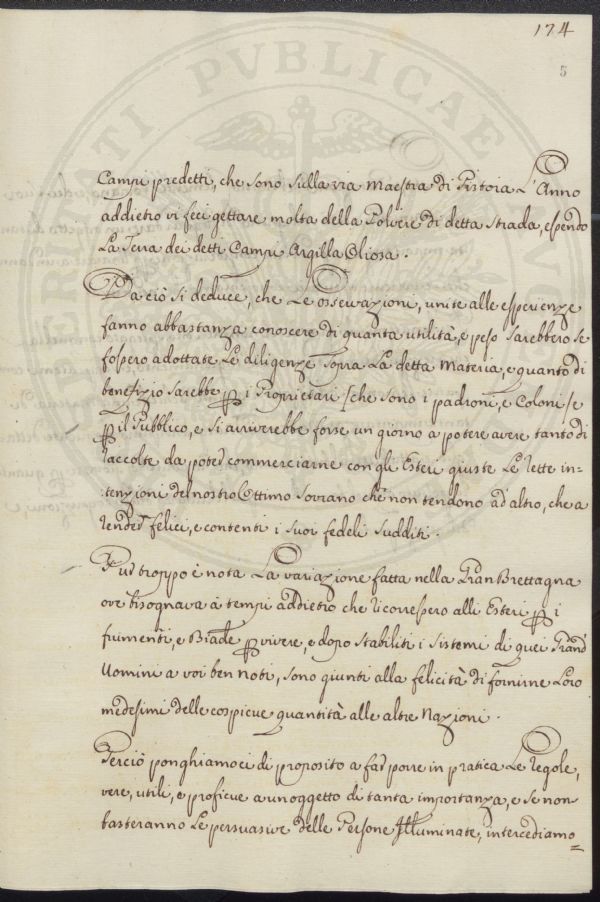 174
5
Campi predetti, che sono sulla via maestra di Pistoia L'Anno
addietro vi feci gettare molta della Polvere di detta strada, essendo
La Terra dei detti Campi Argilla Oliosa.
Da ciò si deduce, che Le osservazioni, unite alle esperienze
fanno abbastanza conoscere di quanta utilità, e peso sarebbero se
fossero adottate Le diligenze sopra La detta Materia, e quanto di
benefizio sarebbe p i Proprietari [che sono i padroni, e Coloni /e
p il Pubblico, e si arriverebbe forse un giorno a potere avere tanto di
raccolte da poter commerciarne con gli Esteri giuste Le rette in-
tenzioni del nostro Ottimo Sovrano che non tendono ad altro, che a
render felici, e contenti i suoi fedeli sudditi.
Pur troppo è nota La variazione fatta nella Gran Brettagna
ove bisognava à tempi addietro che ricorressero alli Esteri p i
frumenti, e Biade p vivere, e dopo stabiliti i sistemi di quei Grand
Uomini a voi ben noti, sono giunti alla felicità di fornirne Loro
medesimi delle cospicue quantità alle altre Nazioni.
Perciò ponghiamoci di proposito a far porre in pratica Le regole,
vere, utili, e proficue a un oggetto di tanta importanza, e se non
basteranno Le persuasive delle Persone Illuminate, intercediamo=
PVBLICAE